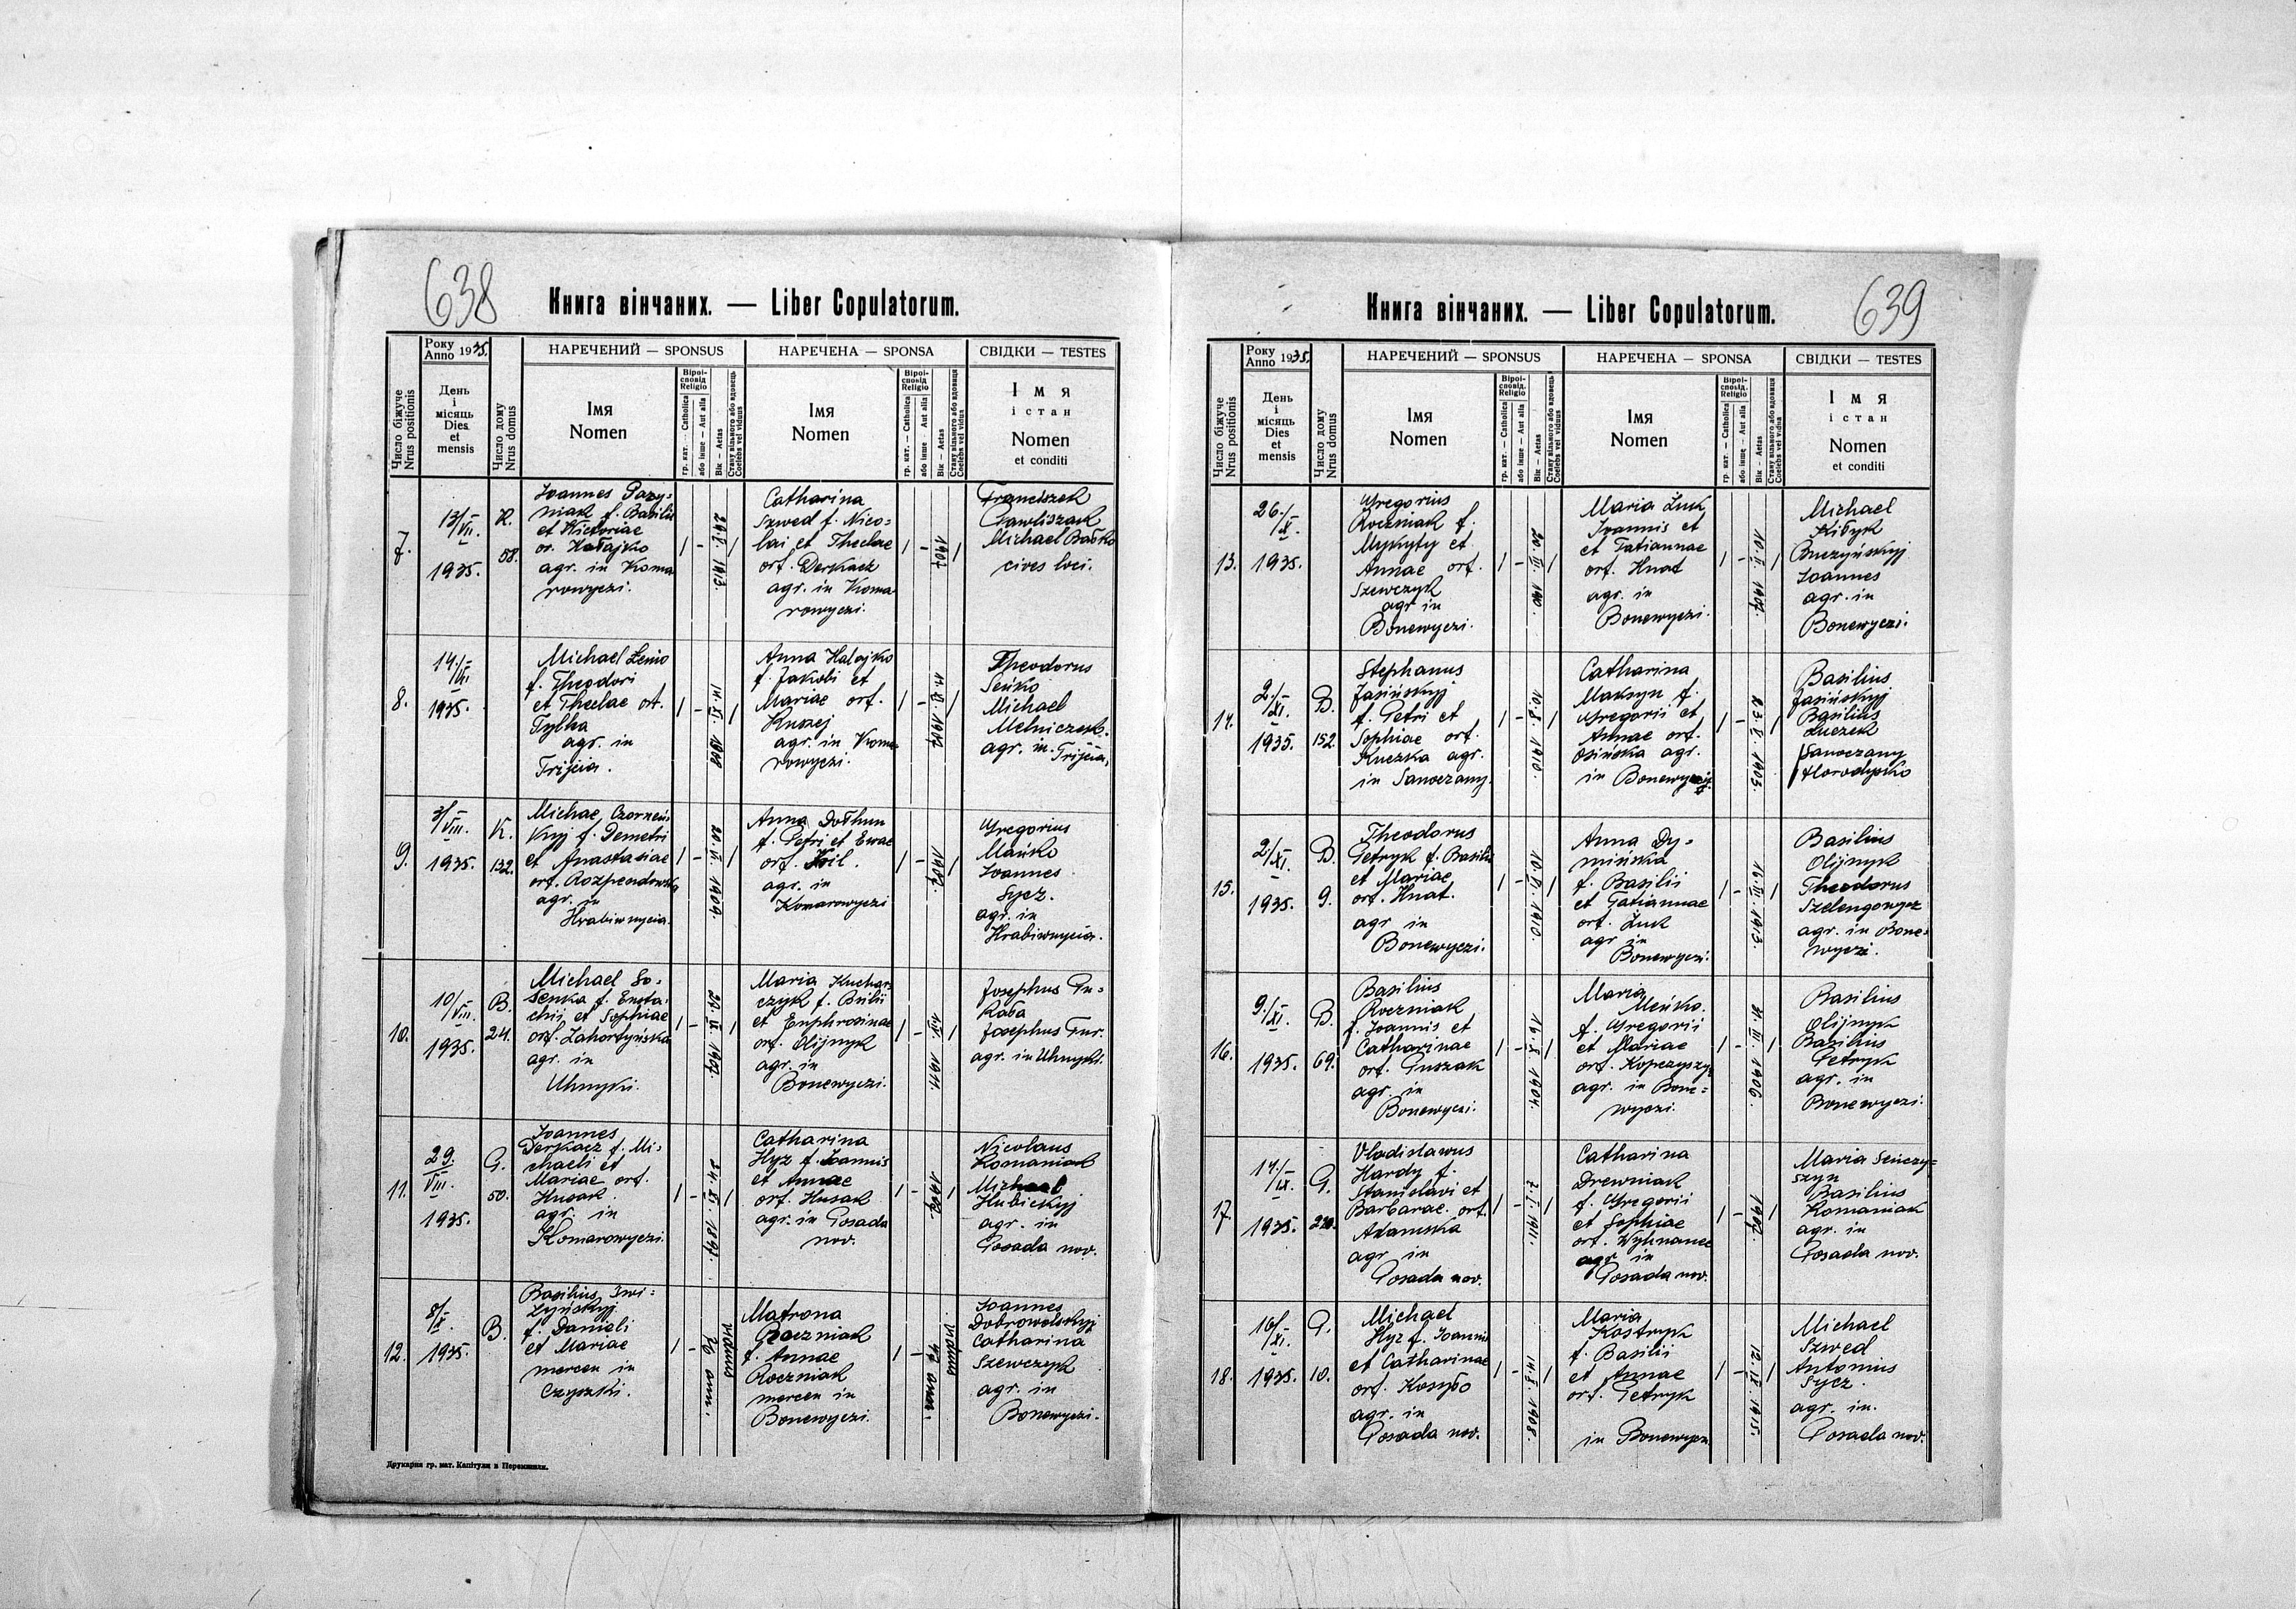 638
Книга вінчаних. — Liber Copulatorum.
Року
Anno 1935.
НАРЕЧЕНИЙ — SPONSUS
НАРЕЧЕНА — SPONSA
СВІДКИ — TESTES
Число біжуче
Nrus positionis
День
і
місяць
Dies
et
mensis
Число дому
Nrus domus
Імя
Nomen
Віроі-
сповід
Religio
гр. кат. — Catholica
або інше — Aut alia
Вік — Aetas
Стану вільного або вдовець
Coelebs vel viduus
Імя
Nomen
Віроі-
сповід
Religio
гр. кат. — Catholica
або інше — Aut alia
Вік — Aetas
Стану вільного або вдовиця
Coelebs vel vidua
Імя
і стан
Nomen
et conditi
7.
13/VII.
1935.
K.
58.
Joannes
niak f. Basilii
et Victoriae
or. Hałajko
agr. in Koma
rowyczi.
1913.
Catharina
Szwed f. Nico=
lai et Theclae
ort. Derkacz
agr. in Koma
rowyczi.
1907
Franciszek
Pawliszak
Michael Babko
cives loci.
8.
14./VII
1935.
Michael Zenio
f. Theodori
et Theclae ort.
Tylka
agr. in
Trijcia.
14.XI. 1909
Anna Halajko
f. Jakobi et
Mariae ort.
Kuszej
agr. in Koma
rowyczi.
1907
Theodorus
Seńko
Michael
Melniczek.
agr. in Trijcia.
9.
3/VIII.
1935.
K.
132.
Michae, Czorneń
kyj f. Demetri
et Anastasiae
ort. Rozpendowska
agr. in
Hrabiwnycia.
20.VI. 1909.
Anna Dołhun
f. Petri et Evae
ort. Kil.
agr. in
Komarowyczi
1907.
Gregorius
Mańko
Joannes
Sycz.
agr. in
Hrabiwnycia.
10.
10/VIII.
1935.
B.
24.
Michael So=
senka f. Eusta=
chii et Sophiae
ort. Zahortyńska
agr. in
Uhnyki.
1907.
Maria Kuchar=
czyk f.
et Euphrosinae
ort. Olijnyk
agr. in
Bonewyczi.
1911.
Josephus
Josephus Tur.
agr. in Uhnyki.
11.
29.
VIII.
1935.
G.
50.
Joannes
Derkacz f. Mi=
chaeli et
Mariae ort.
Husak.
agr. in
Komarowyczi.
Catharina
Hyz f. Joannis
et Annae
ort. Husak
agr. in Posada
nov.
Nicolaus
Romaniak
Michael
Hubickyj
agr. in
Posada nov.
12.
8/X
1935.
B.
Basilius Swi=
żyńskyj
f. Danieli
et Mariae
mercen in
Czyszki.
viduus
Matrona
Roczniak
f. Annae
Roczniak
mercen in
Bonewyczi.
viduus
Joannes
Dobrowolskyj
Catharina
Szewczyk
agr. in
Bonewyczi.
Друкарня гр. кат. Капітули в Перемишли.
639
Книга вінчаних. — Liber Copulatorum.
Року
Anno 1935.
НАРЕЧЕНИЙ — SPONSUS
НАРЕЧЕНА — SPONSA
СВІДКИ — TESTES
Число біжуче
Nrus positionis
День
і
місяць
Dies
et
mensis
Число дому
Nrus domus
Імя
Nomen
Віроі-
сповід.
Religio
гр. кат. — Catholica
або інше — Aut alia
Вік — Aetas
Стану вільного або вдовець
Coelebs vel viduus
Імя
Nomen
Віроі-
сповід.
Religio
гр. кат. — Catholica
або інше — Aut alia
Вік — Aetas
Стану вільного або вдовиця
Coelebs vel vidua
Імя
і стан
Nomen
et conditi
13.
26./X.
1935.
Gregorius
Roczniak f.
Mykyty et
Annae ort.
Szewczyk
agr in
Bonewyczi.
Maria Łuk
Joannis et
et Tatiannae
ort. Hnat
agr. in
Bonewyczi.
1907.
Michael
Kibyk
Buczyńskyj
Joannes
agr. in
Bonewyczi.
14.
2./XI.
1935.
B.
152.
Stephanus
Jasińskyj
f. Petri et
Sophiae ort.
Kuczka agr.
in Sanoczany.
1910.
Catharina
Maksyn f.
Gregorii et
Annae ort.
Osińska agr.
in Bonewyczi.
1903.
Basilius
Jasińskyj
Basilius
Łuczek
Sanoczany
Horodysko
15.
2/XI.
1935.
B.
9.
Theodorus
Petryk f. Basilii
et Mariae
ort. Hnat.
agr in
Bonewyczi.
1910.
Anna Dy=
mińska
f. Basilii
et Tatiannae
ort. Łuk
agr in
Bonewyczi.
16.III. 1913.
Basilius
Olijnyk
Theodorus
Szelengowycz
agr. in Bone=
wyczi.
16.
9./XI.
1935.
B.
69.
Basilius
Roczniak
f. Joannis et
Catharinae
ort. Puszak
agr. in
Bonewyczi.
16.X. 1904.
Maria
Meńko.
f. Gregorii
et Mariae
ort. Kopczyszyn
agr. in Bone=
wyczi.
1906.
Basilius
Olijnyk
Basilius
Petryk
agr. in
Bonewyczi.
17.
14./IX.
1935.
G.
220.
Vladislavus
Hardy f.
Stanislavi et
Barbarae. ort.
Adamska
agr in
Posada nov.
1911.
Catharina
Drewniak
f. Gregorii
et Sophiae
ort. Wyhnanec
agr in
Posada nov.
1907.
Maria Seńczy=
szyn
Basilius
Romaniak
agr. in
Posada nov.
18.
16/XI.
1935.
P.
10.
Michael
Hyz f. Joannis
et Catharinae
ort. Kosybo
agr. in
Posada nov.
1908.
Maria
Kostryk
f. Basilii
et Annae
ort. Petryk
in Bonewyczi
12.IX. 1915.
Michael
Szwed
Antonius
Sycz.
agr. in.
Posada nov.